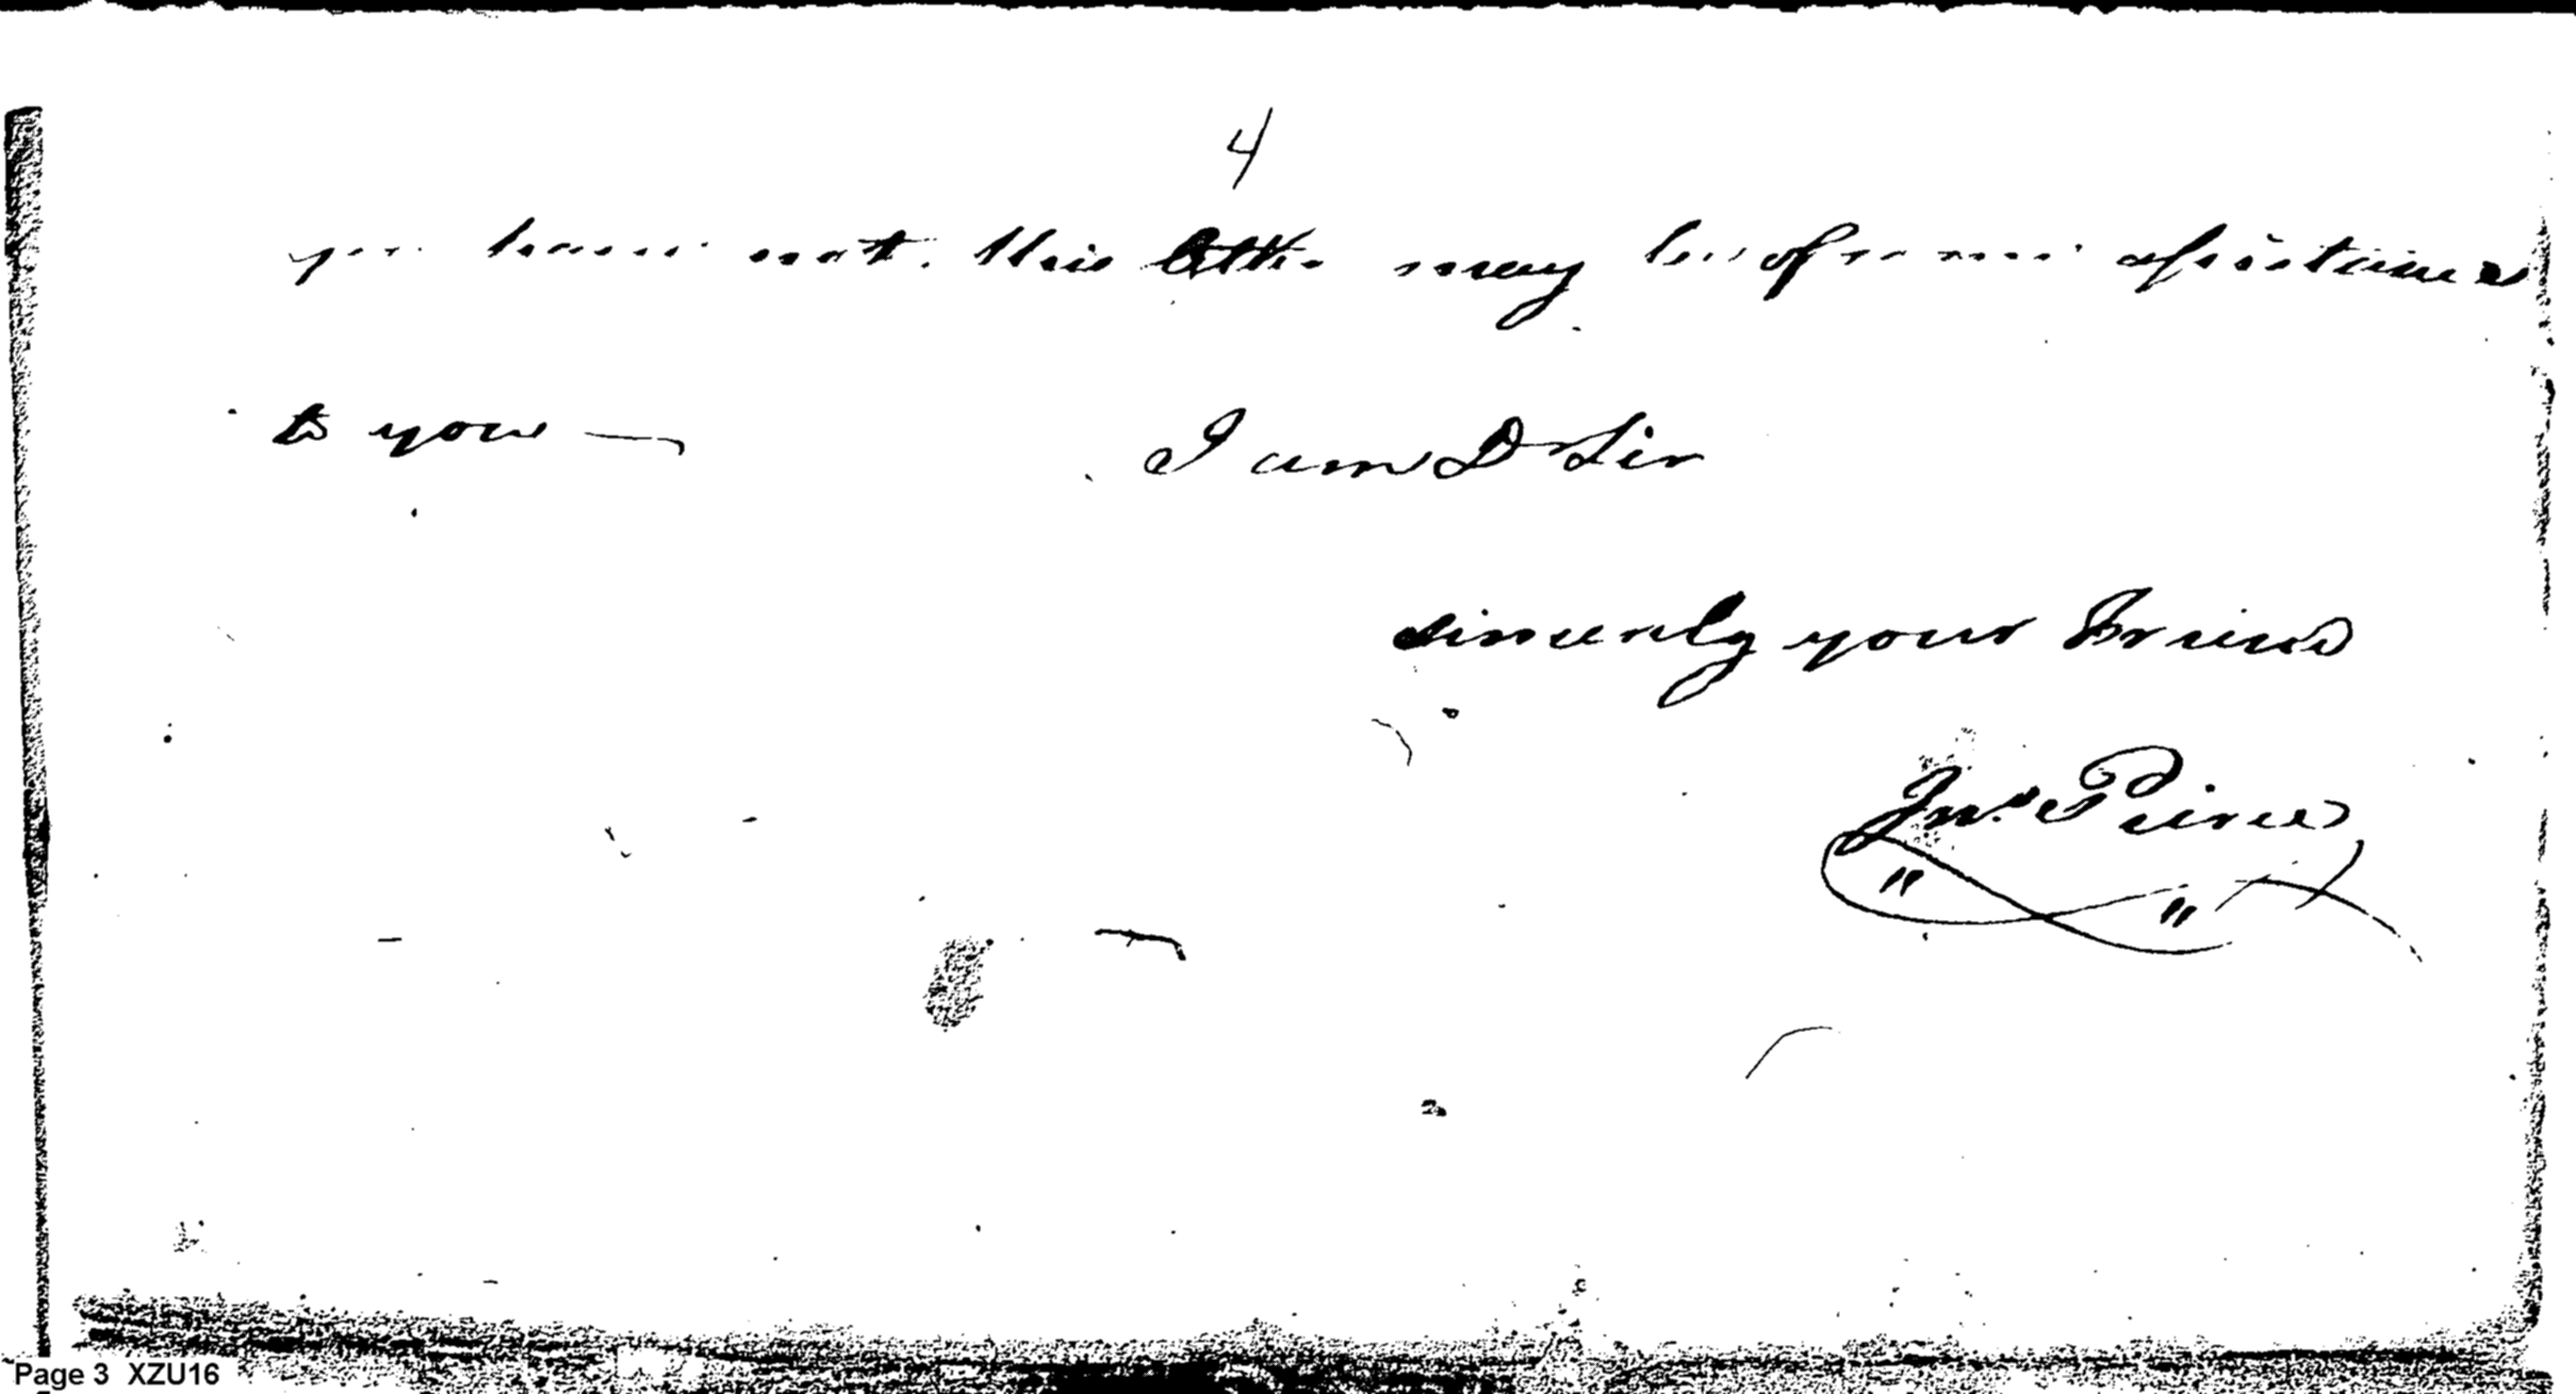 4
you have not. this letter may be of some assistance
to you —
I am Dr Sir
sincerely your Friend
Jno. Peirce
" "
Page 3 XZU16